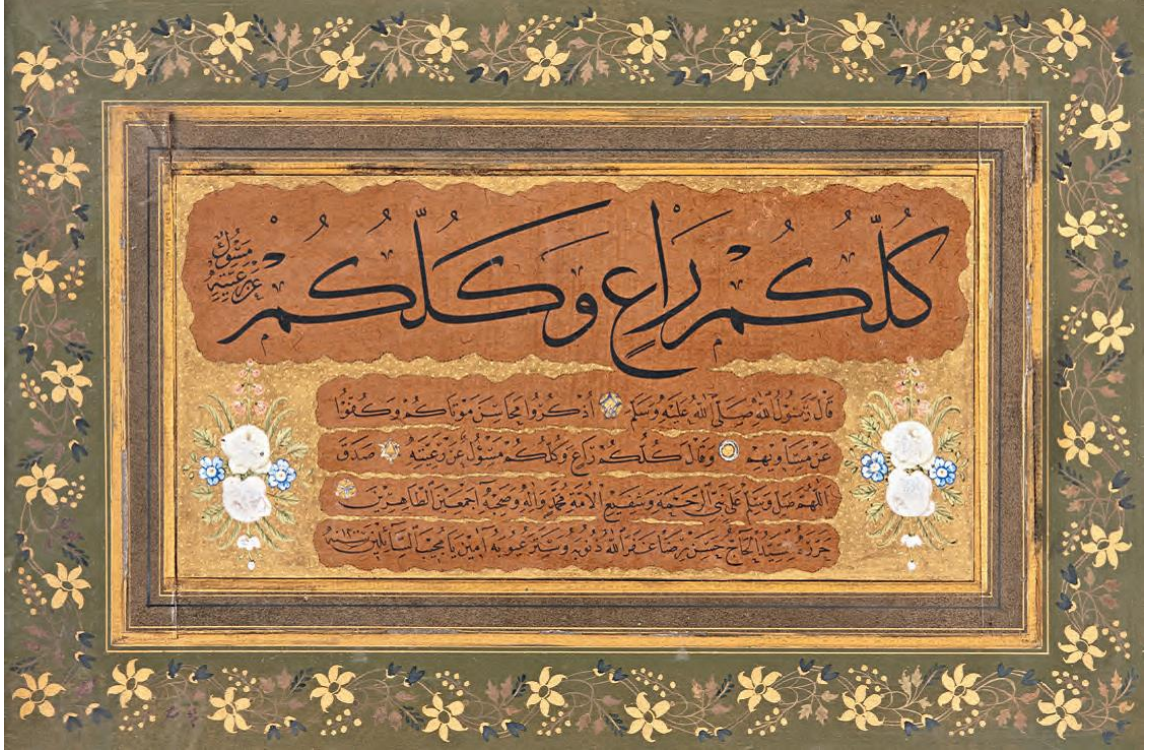 كُلُّكُمْ رَاعٍ وَكُلُّكُمْ
مَسْئُولٌ
عَنْ رَعِيَّتِهِ
قَالَ رَسُولُ اللهِ صَلَّى اللهُ عَلَيْهِ وَسَلَّمَ اُذْكُرُوا مَحَاسِنَ مَوْتَاكُمْ وَكُفُّوا
عَنْ مَسَاوِيهِمْ وَقَالَ كُلُّكُمْ رَاعٍ وَكُلُّكُمْ مَسْئُولٌ عَنْ رَعِيَّتِهِ صَدَقَ
اللهم صل وسلم على نبي الرحمة وشفيع الامة محمد واله وصحبه اجمعين الطاهرين
حرره السيد الحاج حسن رضا غفر الله ذنوبه وستر عيوبه امين يا مجيب السائلين سنه